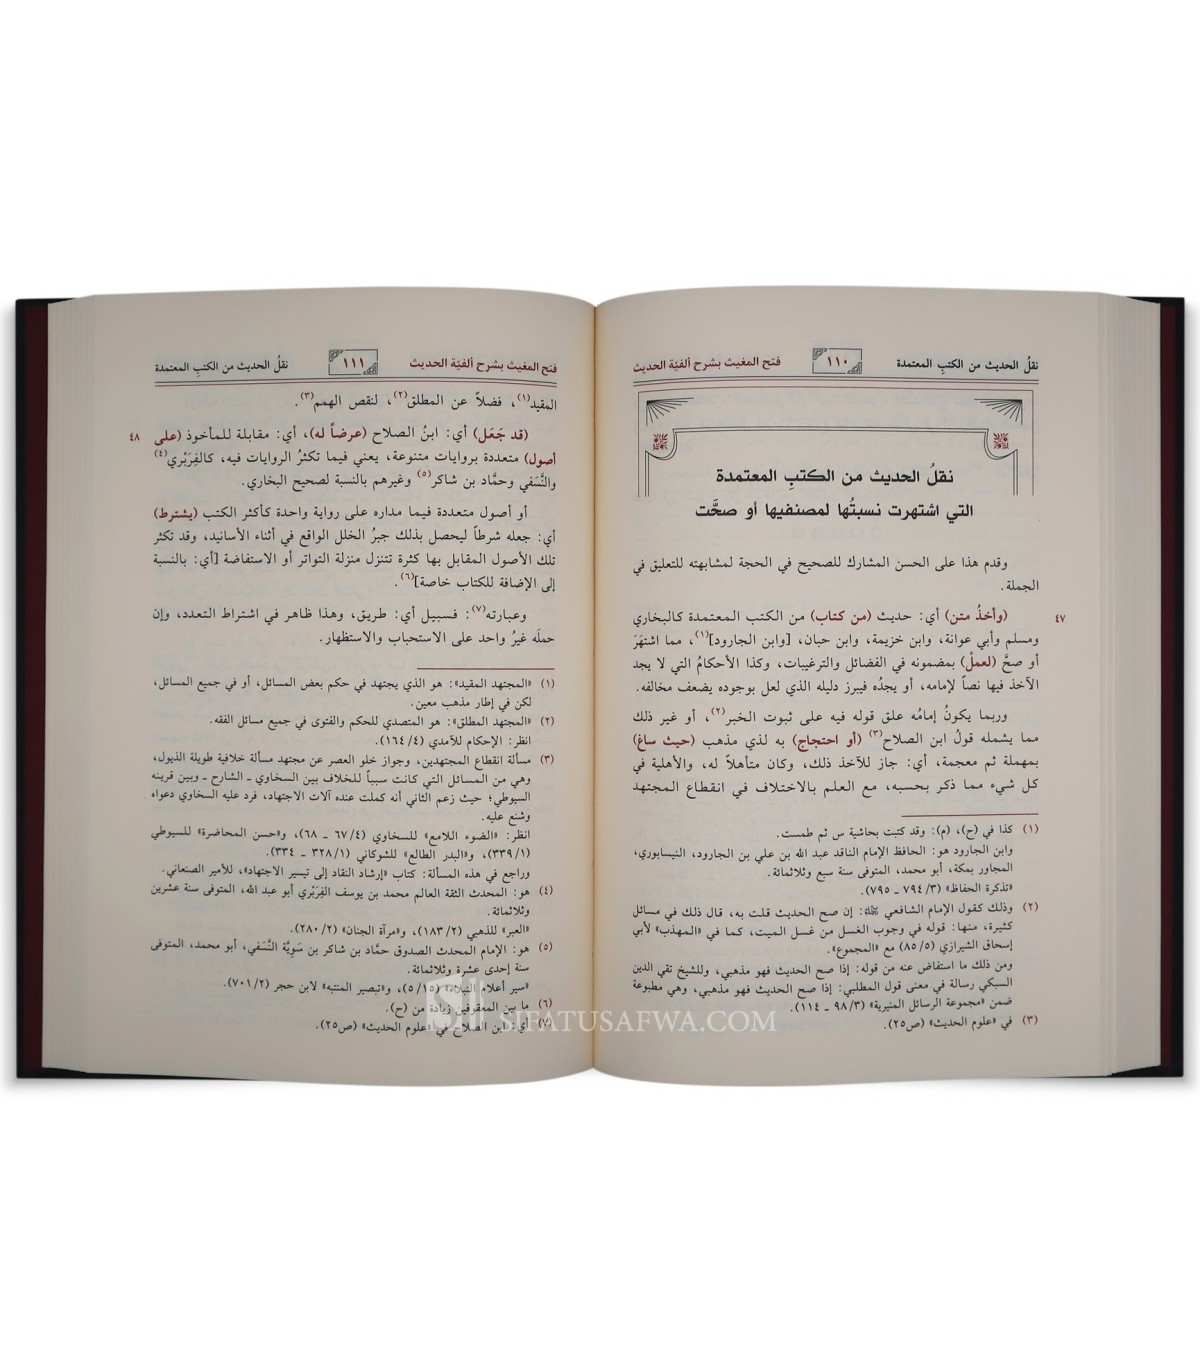 نقلُ الحديث من الكتبِ المعتمدة ١١٠ فتح المغيث بشرح ألفيّة الحديث
نقلُ الحديث من الكتبِ المعتمدة
التي اشتهرت نسبتُها لمصنفيها أو صحَّت
وقدم هذا على الحسن المشارك للصحيح في الحجة لمشابهته للتعليق في
الجملة.
٤٧ (وأخذُ متن) أي: حديث (من كتاب) من الكتب المعتمدة كالبخاري
ومسلم وأبي عوانة، وابن خزيمة، وابن حبان، [وابن الجارود](١)، مما اشتهَرَ
أو صحَّ (لعملْ) بمضمونه في الفضائل والترغيبات، وكذا الأحكامُ التي لا يجد
الآخذ فيها نصاً لإمامه، أو يجدُه فيبرز دليله الذي لعل بوجوده يضعف مخالفه.
وربما يكونُ إمامُه علق قوله فيه على ثبوت الخبر(٢)، أو غير ذلك
مما يشمله قولُ ابن الصلاح(٣) (أو احتجاج) به لذي مذهب (حيث ساغ)
بمهملة ثم معجمة، أي: جاز للآخذ ذلك، وكان متأهلاً له، والأهلية في
كل شيء مما ذكر بحسبه، مع العلم بالاختلاف في انقطاع المجتهد
(١) كذا في (ح)، (م): وقد كتبت بحاشية س ثم طمست.
وابن الجارود هو: الحافظ الإمام الناقد عبد الله بن علي بن الجارود، النيسابوري،
المجاور بمكة، أبو محمد، المتوفى سنة سبع وثلاثمائة.
«تذكرة الحفاظ» (٣/ ٧٩٤ ـ ٧٩٥).
(٢) وذلك كقول الإمام الشافعي ﷺ: إن صح الحديث قلت به، قال ذلك في مسائل
كثيرة، منها: قوله في وجوب الغسل من غسل الميت، كما في «المهذب» لأبي
إسحاق الشيرازي (٥/ ٨٥) مع «المجموع».
ومن ذلك ما استفاض عنه من قوله: إذا صح الحديث فهو مذهبي، وللشيخ تقي الدين
السبكي رسالة في معنى قول المطلبي: إذا صح الحديث فهو مذهبي، وهي مطبوعة
ضمن «مجموعة الرسائل المنيرية» (٣/ ٩٨ ـ ١١٤).
(٣) في «علوم الحديث» (ص٢٥).
فتح المغيث بشرح ألفيّة الحديث ١١١ نقلُ الحديث من الكتبِ المعتمدة
المقيد(١)، فضلاً عن المطلق(٢)، لنقص الهمم(٣).
٤٨ (قد جَعَل) أي: ابنُ الصلاح (عرضاً له)، أي: مقابلة للمأخوذ (على
أصول) متعددة بروايات متنوعة، يعني فيما تكثرُ الروايات فيه، كالفِرَبْري(٤)
والنَّسَفي وحمَّاد بن شاكر(٥) وغيرهم بالنسبة لصحيح البخاري.
أو أصول متعددة فيما مداره على رواية واحدة كأكثر الكتب (يشترط)
أي: جعله شرطاً ليحصل بذلك جبرُ الخلل الواقع في أثناء الأسانيد، وقد تكثر
تلك الأصول المقابل بها كثرة تتنزل منزلة التواتر أو الاستفاضة [أي: بالنسبة
إلى الإضافة للكتاب خاصة](٦).
وعبارته(٧): فسبيل أي: طريق، وهذا ظاهر في اشتراط التعدد، وإن
حملَه غيرُ واحد على الاستحباب والاستظهار.
(١) «المجتهد المقيد»: هو الذي يجتهد في حكم بعض المسائل، أو في جميع المسائل،
لكن في إطار مذهب معين.
(٢) «المجتهد المطلق»: هو المتصدي للحكم والفتوى في جميع مسائل الفقه.
انظر: الإحكام للآمدي (٤/ ١٦٤).
(٣) مسألة انقطاع المجتهدين، وجواز خلو العصر عن مجتهد مسألة خلافية طويلة الذيول،
وهي من المسائل التي كانت سبباً للخلاف بين السخاوي ـ الشارح ـ وبين قرينه
السيوطي؛ حيث زعم الثاني أنه كملت عنده آلات الاجتهاد، فرد عليه السخاوي دعواه
وشنع عليه.
انظر: «الضوء اللامع» للسخاوي (٤/ ٦٧ ـ ٦٨)، و«حسن المحاضرة» للسيوطي
(١/ ٣٣٩)، و«البدر الطالع» للشوكاني (١/ ٣٢٨ ـ ٣٣٤).
وراجع في هذه المسألة: كتاب «إرشاد النقاد إلى تيسير الاجتهاد»، للأمير الصنعاني.
(٤) هو: المحدث الثقة العالم محمد بن يوسف الفِرَبْري أبو عبد الله، المتوفى سنة عشرين
وثلاثمائة.
«العبر» للذهبي (٢/ ١٨٣)، و«مرآة الجنان» (٢/ ٢٨٠).
(٥) هو: الإمام المحدث الصدوق حمَّاد بن شاكر بن سَوِيَّة النَّسَفي، أبو محمد، المتوفى
سنة إحدى عشرة وثلاثمائة.
«سير أعلام النبلاء» (١٥/ ٥)، و«تبصير المنتبه» لابن حجر (٢/ ٧٠١).
(٦) ما بين المعقوفين زيادة من (ح).
(٧) أي: ابن الصلاح في «علوم الحديث» (ص٢٥).
SIFATUSAFWA.COM